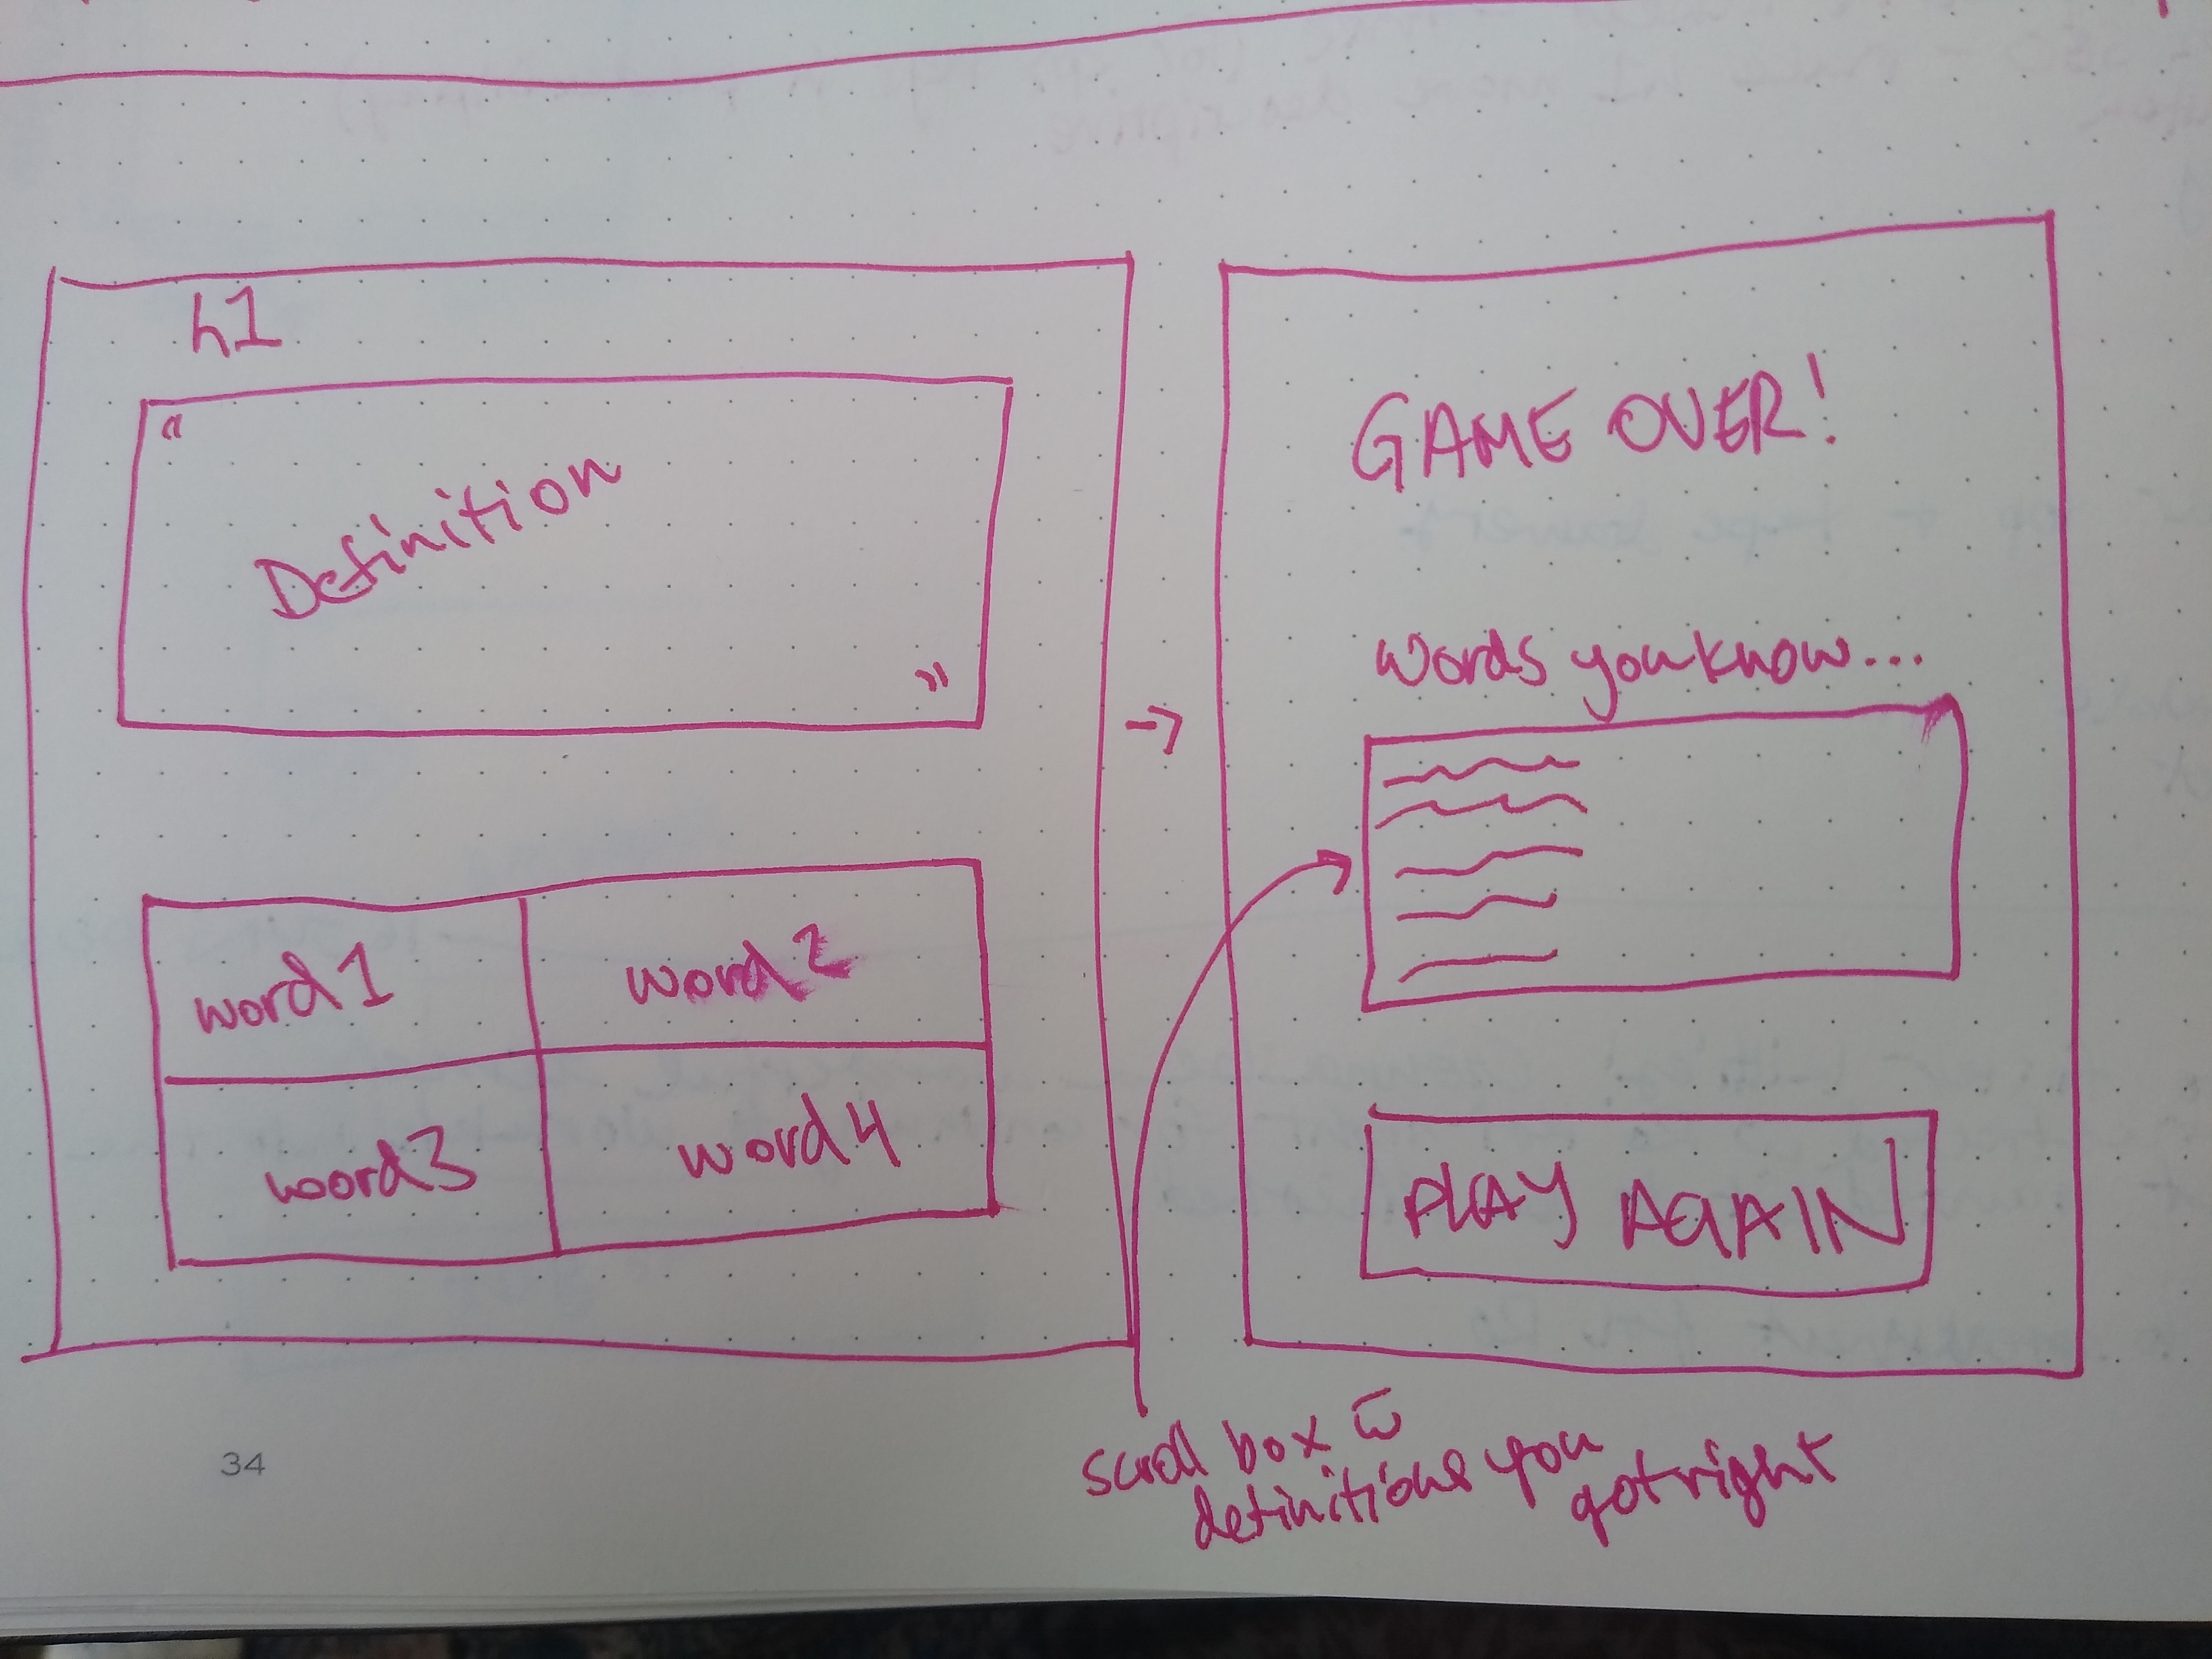 h1
“
Definition
”
word1 word2
word3 word4
→
GAME OVER!
words you know...
PLAY AGAIN
scroll box w̅
definitions you
got right
34